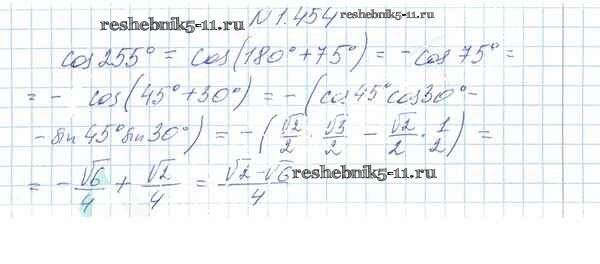 №1.454
reshebnik5-11.ru reshebnik5-11.ru
cos 255° = cos(180° + 75°) = - cos 75° =
= - cos(45° + 30°) = - (cos 45° cos 30° -
- sin 45° sin 30°) = - (√2/2 · √3/2 - √2/2 · 1/2) =
= - √6/4 + √2/4 = (√2 - √6)/4
reshebnik5-11.ru